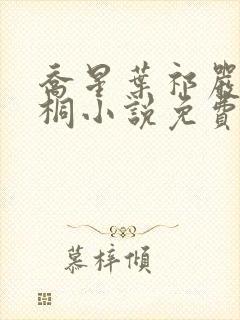 喬星葉祁嚴
桐小說免費
慕梓傾